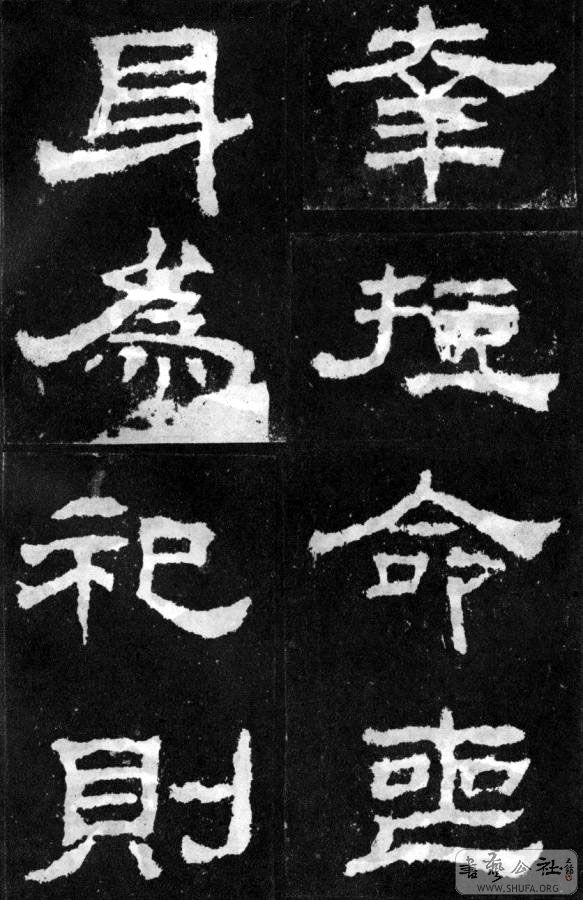 幸短命喪
身為祀則
書藝公社
WWW.SHUFA.ORG